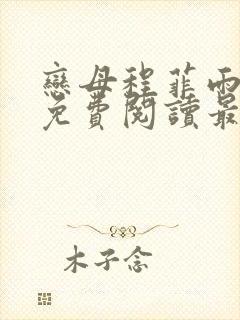 戀母程菲雨
免費閱讀最
木子念